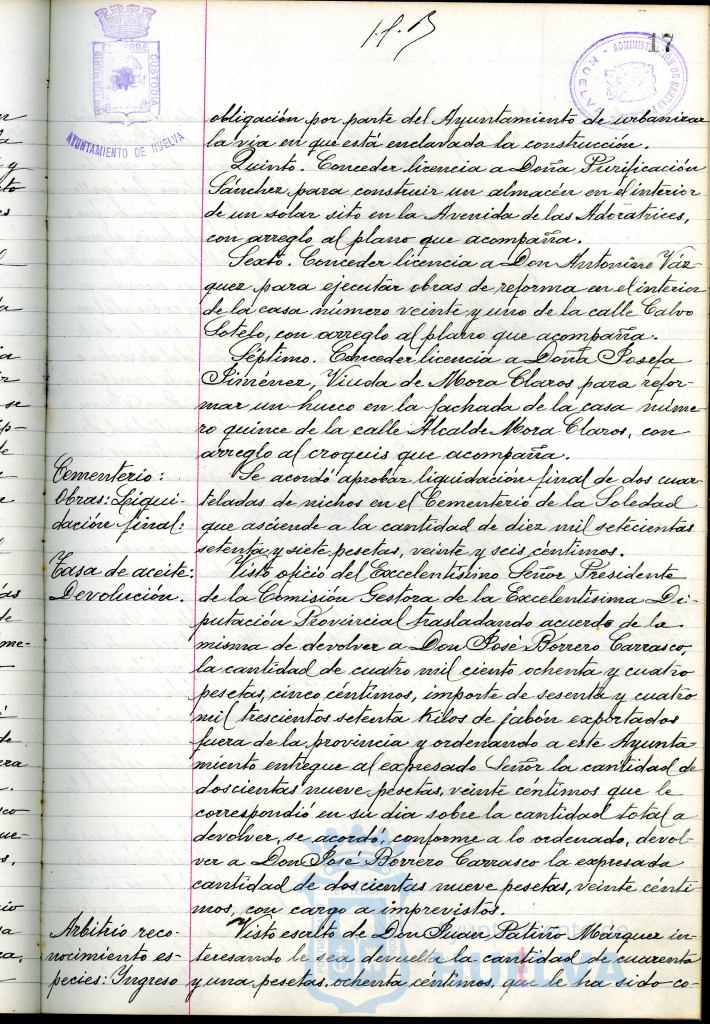 17
SANCTA MARIA
ET TERRAE CUSTODIA
AYUNTAMIENTO DE HUELVA
ADMINISTRACION DE RENTAS
HUELVA
obligación por parte del Ayuntamiento de urbanizar
la via en que está enclavada la construcción.
Quinto. Conceder licencia a Doña Purificación
Sánchez para construir un almacén en el interior
de un solar sito en la Avenida de las Adoratrices,
con arreglo al plano que acompaña.
Sexto. Conceder licencia a Don Antonino Váz-
quez para ejecutar obras de reforma en el interior
de la casa número veinte y uno de la calle Calvo
Sotelo, con arreglo al plano que acompaña.
Séptimo. Conceder licencia a Doña Josefa
Jiménez, Viuda de Mora Claros para refor-
mar un hueco en la fachada de la casa núme-
ro quince de la calle Alcalde Mora Claros, con
arreglo al croquis que acompaña.
Cementerio:
Obras: Liqui-
dación final:
Se acordó aprobar liquidación final de dos cuar-
teladas de nichos en el Cementerio de la Soledad
que asciende a la cantidad de diez mil setecientas
setenta y siete pesetas, veinte y seis céntimos.
Tasa de aceite:
Devolución.
Visto oficio del Excelentísimo Señor Presidente
de la Comisión Gestora de la Excelentísima Di-
putación Provincial trasladando acuerdo de la
misma de devolver a Don José Borrero Carrasco,
la cantidad de cuatro mil ciento ochenta y cuatro
pesetas, cinco céntimos, importe de sesenta y cuatro
mil trescientos setenta kilos de jabón exportados
fuera de la provincia y ordenando a este Ayunta-
miento entregue al expresado Señor la cantidad de
doscientas nueve pesetas, veinte céntimos que le
correspondió en su dia sobre la cantidad total a
devolver, se acordó, conforme a lo ordenado, devol-
ver a Don José Borrero Carrasco la expresada
cantidad de doscientas nueve pesetas, veinte cénti-
mos, con cargo a imprevistos.
Arbitrio reco-
nocimiento es-
pecies: Ingreso
Visto escrito de Don Juan Patiño Márquez in-
teresando le sea devuelta la cantidad de cuarenta
y una pesetas, ochenta céntimos, que le ha sido co-
HUELVA